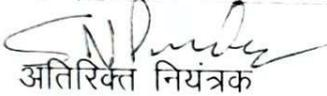 अतिरिक्त नियंत्रक